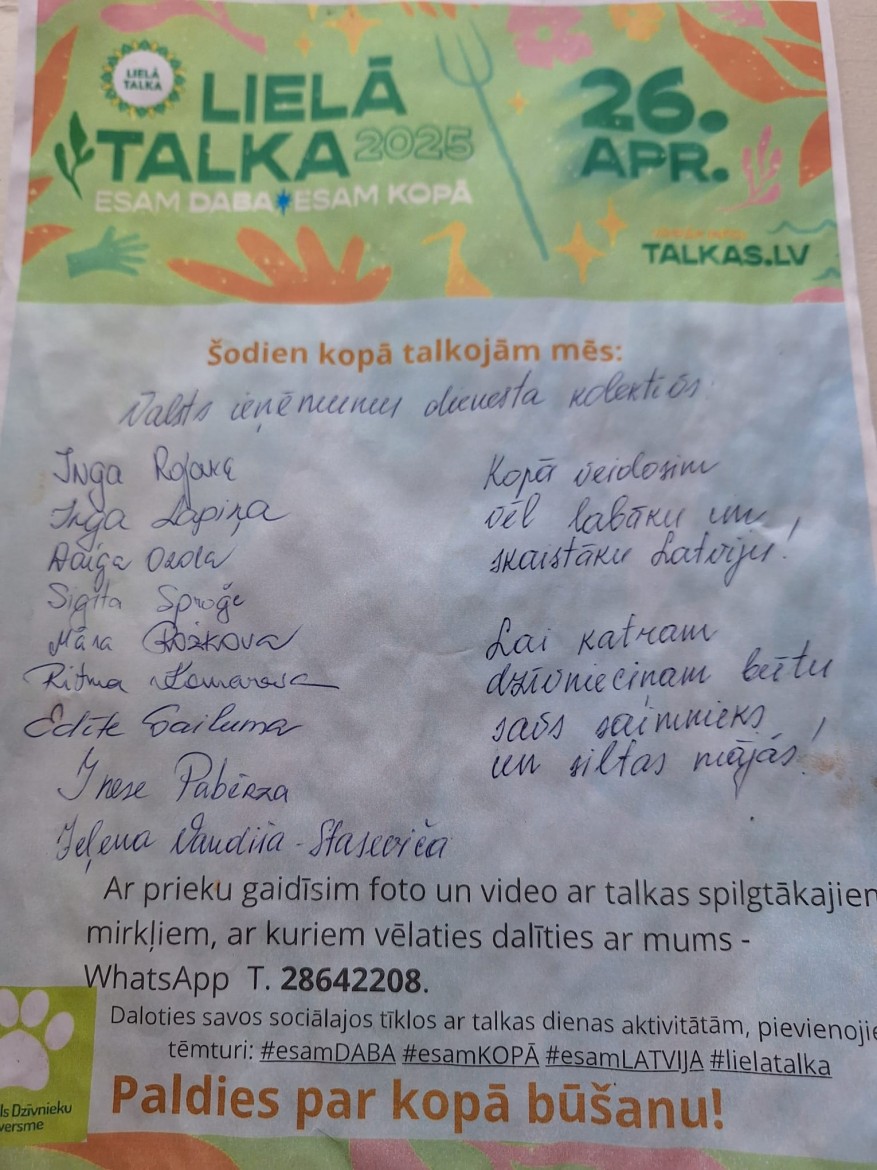 LIELĀ TALKA
LIELĀ
TALKA 2025
ESAM DABA ESAM KOPĀ
26.
APR.
TALKAS.LV
Šodien kopā talkojām mēs:
Valsts ieņēmumu dienesta kolektīvs
Inga
Inga Lapiņa
Daiga Ozola
Sigita Sproģe
Māra Božkova
Ritma Komarova
Edīte Gailuma
Inese Pabērza
Jeļena -Staseviča
Kopā veidosim
vēl labāku un
skaistāku Latviju!
Lai katram
dzīvnieciņam būtu
savs saimnieks
un siltas mājās!
Ar prieku gaidīsim foto un video ar talkas spilgtākajien
mirkļiem, ar kuriem vēlaties dalīties ar mums -
WhatsApp T. 28642208.
Daloties savos sociālajos tīklos ar talkas dienas aktivitātām, pievienojie
tēmturi: #esamDABA #esamKOPĀ #esamLATVIJA #lielatalka
ls Dzīvnieku
versme
Paldies par kopā būšanu!